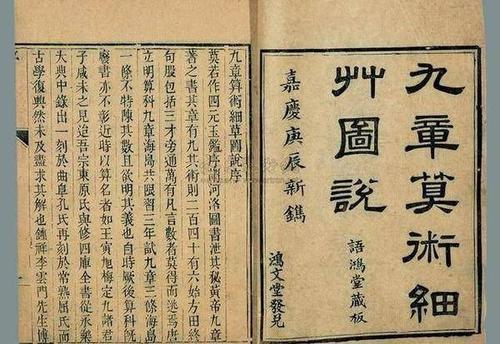 九章算術細
艸圖說
嘉慶庚辰新鐫
語鴻堂藏板
鴻文堂發兌
九章算術細草圖說序
莫若作四元玉鑑序謂河洛圖書泄其秘黃帝九章
著之書其章有九其術則二百四十有六始方田終
句股包括三才旁通萬有凡言數者莫得而逃焉唐
立明算科九章海島共限習三年試九章三條海島
一條不特陳其數且欲明其義也自時厥後算科旣
廢書亦不彰近時以算名者如王寅旭梅定九諸君
子咸未之見迨吾宗東原氏與修四庫全書從永樂
大典中錄出一刻於曲阜孔氏再刻於常熟屈氏而
古學復興然未及盡求其解也鍾祥李雲門先生博